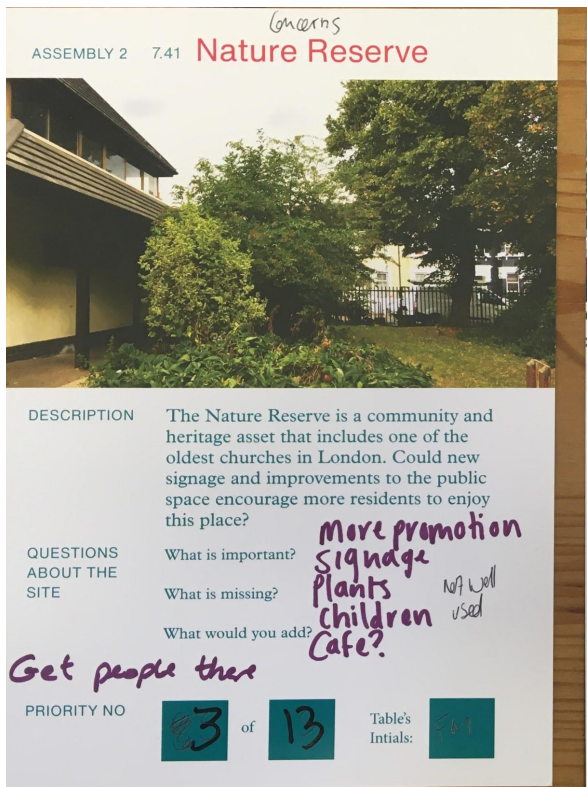 Concerns
ASSEMBLY 2 7.41 Nature Reserve
DESCRIPTION
The Nature Reserve is a community and
heritage asset that includes one of the
oldest churches in London. Could new
signage and improvements to the public
space encourage more residents to enjoy
this place?
QUESTIONS
ABOUT THE
SITE
What is important?
What is missing?
What would you add?
More promotion
Signage
Plants
Children
Cafe?
Not well
used
Get people there
PRIORITY NO
3 of 13
Table's
Intials: